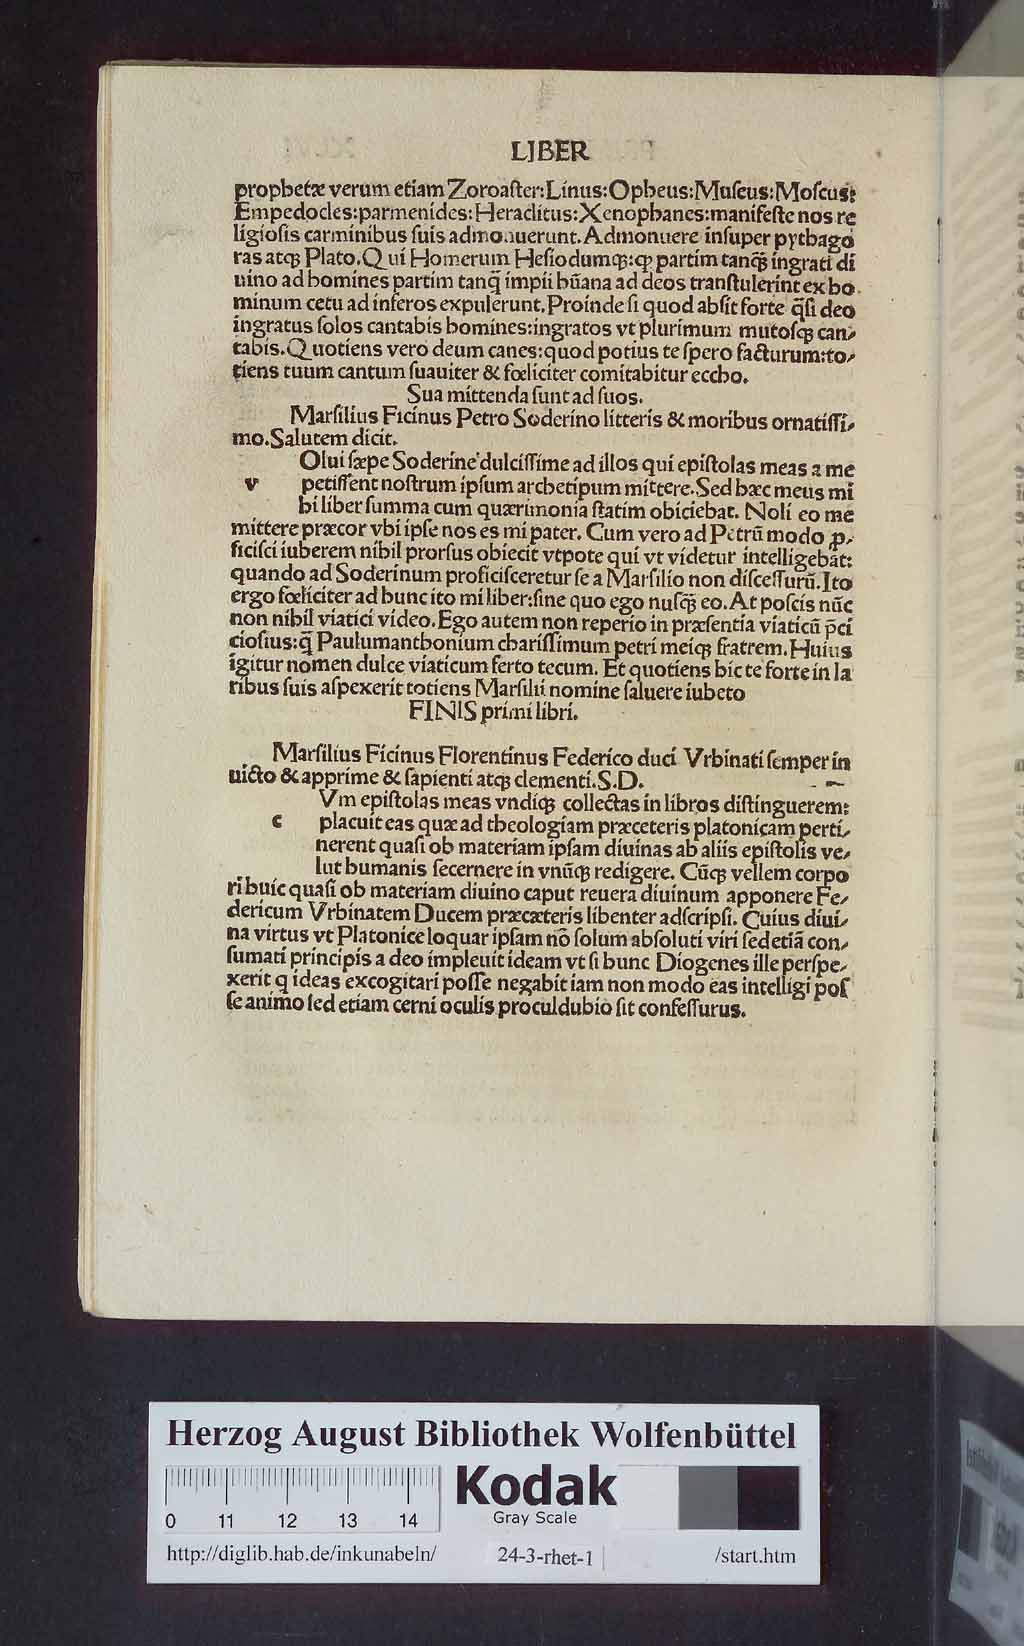 LIBER
prophetæ verum etiam Zoroaſter:Linus:Opheus:Muſeus:Moſcus:
Empedocles:parmenides:Heraclitus:Xenophanes:manifeſte nos re
ligioſis carminibus ſuis admonuerunt.Admonuere inſuper pythago
ras atqꝫ Plato.Qui Homerum Heſiodumqꝫ:ꝙ partim tanqꝫ̃ ingrati di
uino ad homines partim tanq̃ impii hũana ad deos tranſtulerint ex ho
minum cetu ad inferos expulerunt.Proinde ſi quod abſit forte q̃ſi deo
ingratus ſolos cantabis homines:ingratos vt plurimum mutoſqꝫ can⸗
tabis.Quotiens vero deum canes:quod potius te ſpero facturum:to⸗
tiens tuum cantum ſuauiter & fœliciter comitabitur eccho.
Sua mittenda ſunt ad ſuos.
Marſilius Ficinus Petro Soderino litteris & moribus ornatiſſi⸗
mo.Salutem dicit.
Olui ſæpe Soderine dulciſſime ad illos qui epiſtolas meas a me
v petiſſent noſtrum ipſum archetipum mittere.Sed hæc meus mi
hi liber ſumma cum quærimonia ſtatim obiciebat. Noli eo me
mittere præcor vbi ipſe nos es mi pater. Cum vero ad Petrũ modo ꝓ⸗
ficiſci iuberem nihil prorſus obiecit vtpote qui vt videtur intelligebat:
quando ad Soderinum proficiſceretur ſe a Marſilio non diſceſſurũ.Ito
ergo fœliciter ad hunc ito mi liber:ſine quo ego nuſqꝫ̃ eo.At poſcis nũc
non nihil viatici video.Ego autem non reperio in præſentia viaticũ p̃ci
cioſius:q̃ Paulumanthonium chariſſimum petri meiqꝫ fratrem.Huius
igitur nomen dulce viaticum ferto tecum. Et quotiens hic te forte in la
ribus ſuis aſpexerit totiens Marſilii nomine ſaluere iubeto
FINIS primi libri.
Marſilius Ficinus Florentinus Federico duci Vrbinati ſemper in
uicto & apprime & ſapienti atqꝫ clementi.S.D.
Vm epiſtolas meas vndiqꝫ collectas in libros diſtinguerem:
c placuit eas quæ ad theologiam præceteris platonicam perti⸗
nerent quaſi ob materiam ipſam diuinas ab aliis epiſtolis ve⸗
lut humanis ſecernere in vnũqꝫ redigere. Cũqꝫ vellem corpo
ri huic quaſi ob materiam diuino caput reuera diuinum apponere Fe⸗
dericum Vrbinatem Ducem præcæteris libenter adſcripſi. Cuius diui⸗
na virtus vt Platonice loquar ipſam nõ ſolum abſoluti viri ſed etiã con⸗
ſumati principis a deo impleuit ideam vt ſi hunc Diogenes ille perſpe⸗
xerit q ideas excogitari poſſe negabit iam non modo eas intelligi poſ
ſe animo ſed etiam cerni oculis proculdubio ſit confeſſurus.
Herzog August Bibliothek Wolfenbüttel
0 11 12 13 14
Kodak
Gray Scale
http://diglib.hab.de/inkunabeln/ 24-3-rhet-1 /start.htm